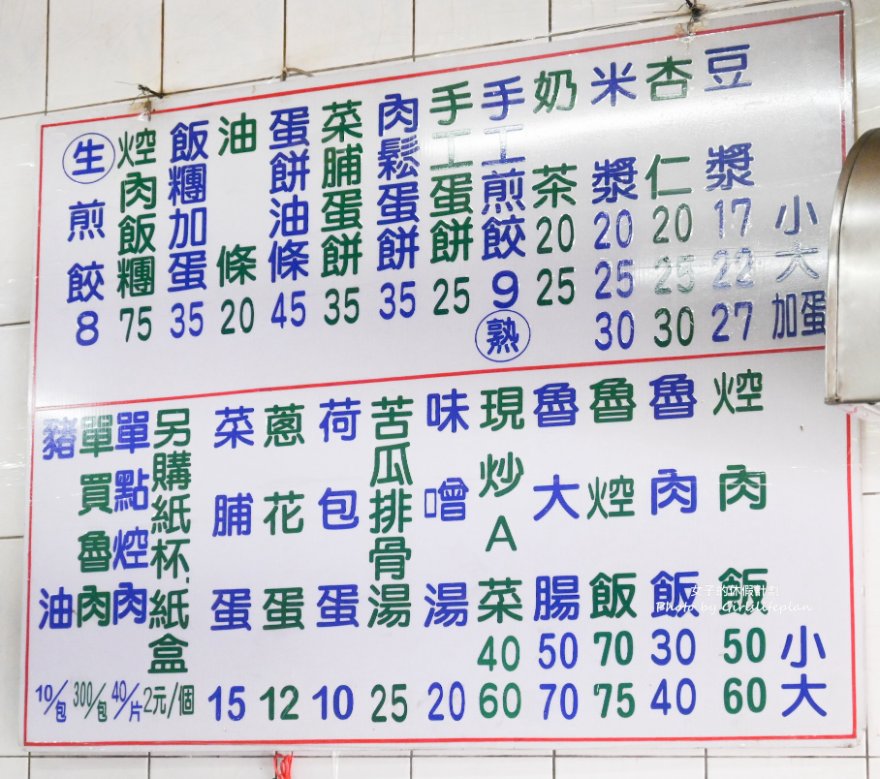 小 大 加蛋
豆漿 17 22 27
杏仁 20 25 30
米漿 20 25 30
奶茶 20 25
手工煎餃 9 熟
手工蛋餅 25
肉鬆蛋餅 35
菜脯蛋餅 35
蛋餅油條 45
油條 20
飯糰加蛋 35
焢肉飯糰 75
生煎餃 8
小 大
焢肉飯 50 60
魯肉飯 30 40
魯焢飯 70 75
魯大腸 50 70
現炒A菜 40 60
味噌湯 20
苦瓜排骨湯 25
荷包蛋 10
蔥花蛋 12
菜脯蛋 15
另購紙杯.紙盒 2元/個
單點焢肉 40/片
單買魯肉 300/包
豬油 10/包
女子的休假計劃
Photo by Girlslifeplan